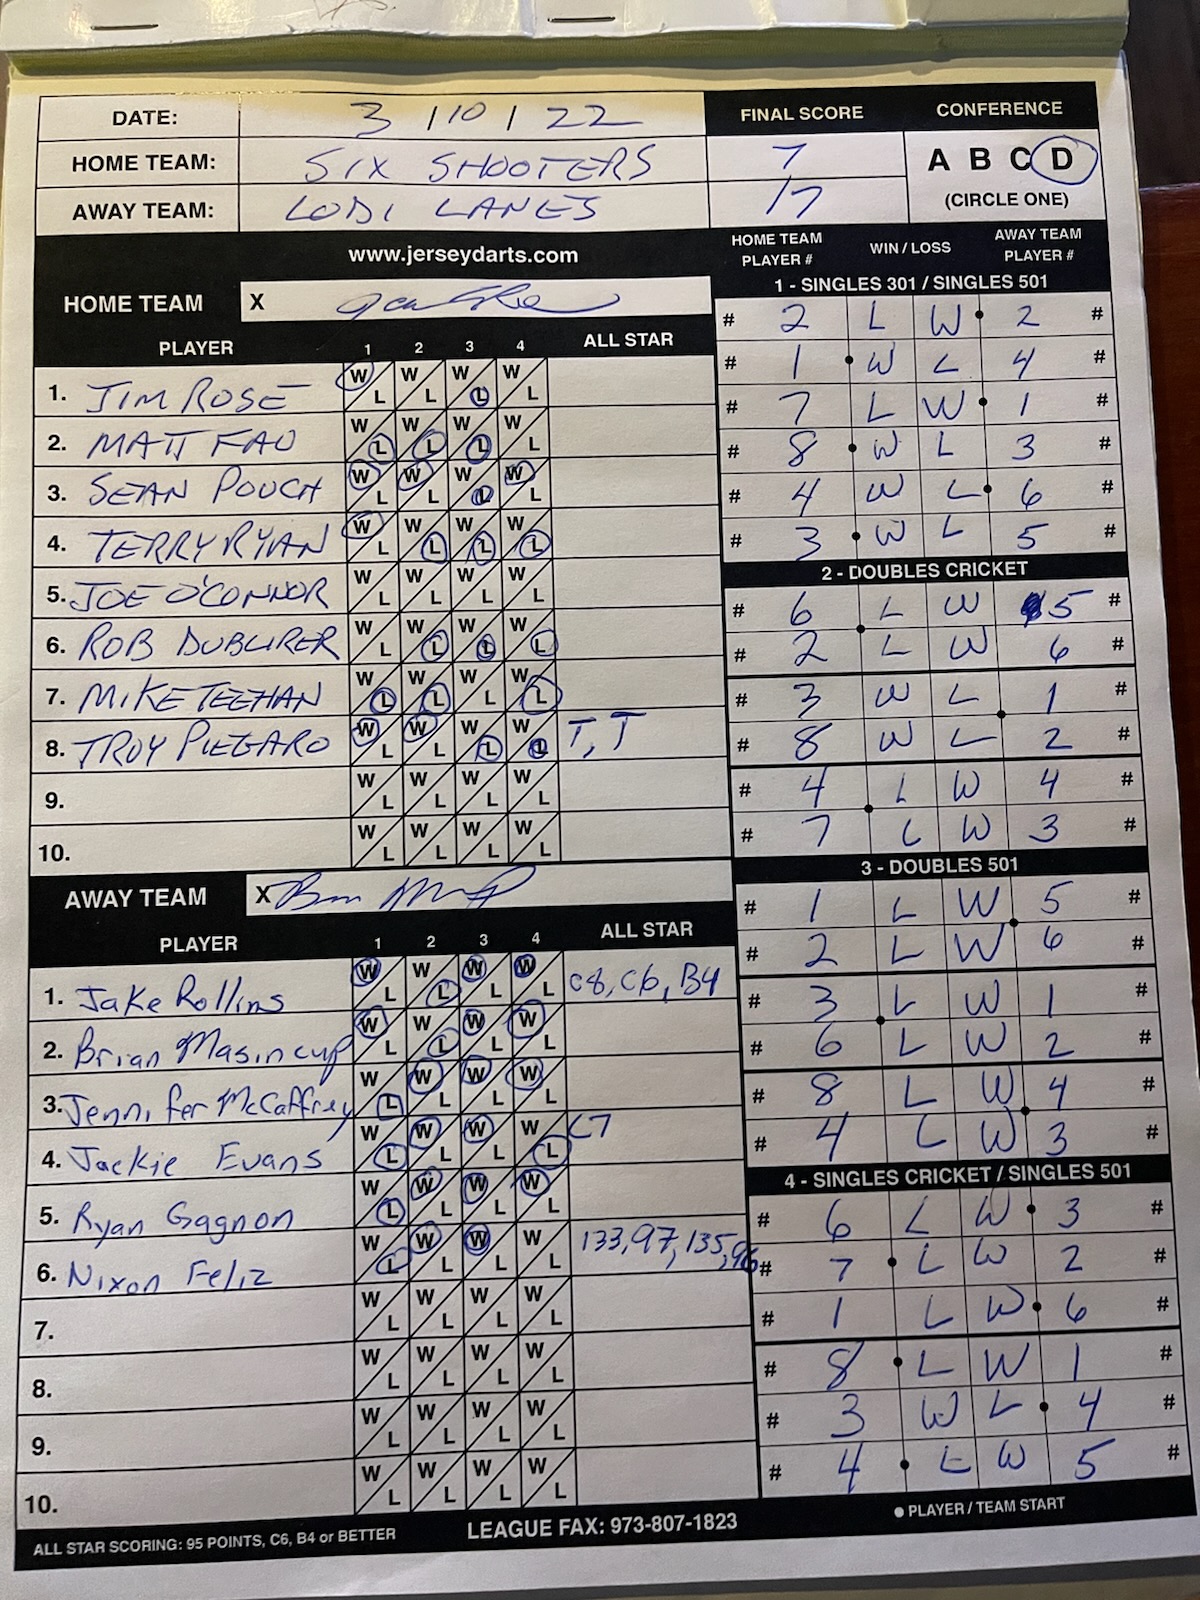 DATE: 3 / 10 / 22 FINAL SCORE CONFERENCE
HOME TEAM: SIX SHOOTERS 7 A B C D
AWAY TEAM: LODI LANES 17 (CIRCLE ONE)
www.jerseydarts.com
HOME TEAM X
PLAYER 1 2 3 4 ALL STAR
1. JIM ROSE W L W L W L W L
2. MATT FAU W L W L W L W L
3. SEAN POUCH W L W L W L W L
4. TERRY RYAN W L W L W L W L
5. JOE O'CONNOR W L W L W L W L
6. ROB DUBLIRER W L W L W L W L
7. MIKE TEEHAN W L W L W L W L
8. TROY PIEGARO W L W L W L W L T, T
9. W L W L W L W L
10. W L W L W L W L
AWAY TEAM X
PLAYER 1 2 3 4 ALL STAR
1. Jake Rollins W L W L W L W L C8, C6, B4
2. Brian Masincup W L W L W L W L
3. Jennifer McCaffrey W L W L W L W L
4. Jackie Evans W L W L W L W L C7
5. Ryan Gagnon W L W L W L W L
6. Nixon Feliz W L W L W L W L 133, 97, 135, 96
7. W L W L W L W L
8. W L W L W L W L
9. W L W L W L W L
10. W L W L W L W L
ALL STAR SCORING: 95 POINTS, C6, B4 or BETTER
LEAGUE FAX: 973-807-1823
HOME TEAM PLAYER # WIN / LOSS AWAY TEAM PLAYER #
1 - SINGLES 301 / SINGLES 501
# 2 L W 2 #
# 1 W L 4 #
# 7 L W 1 #
# 8 W L 3 #
# 4 W L 6 #
# 3 W L 5 #
2 - DOUBLES CRICKET
# 6 L W 5 #
# 2 L W 6 #
# 3 W L 1 #
# 8 W L 2 #
# 4 L W 4 #
# 7 L W 3 #
3 - DOUBLES 501
# 1 L W 5 #
# 2 L W 6 #
# 3 L W 1 #
# 6 L W 2 #
# 8 L W 4 #
# 4 L W 3 #
4 - SINGLES CRICKET / SINGLES 501
# 6 L W 3 #
# 7 L W 2 #
# 1 L W 6 #
# 8 L W 1 #
# 3 W L 4 #
# 4 L W 5 #
● PLAYER / TEAM START